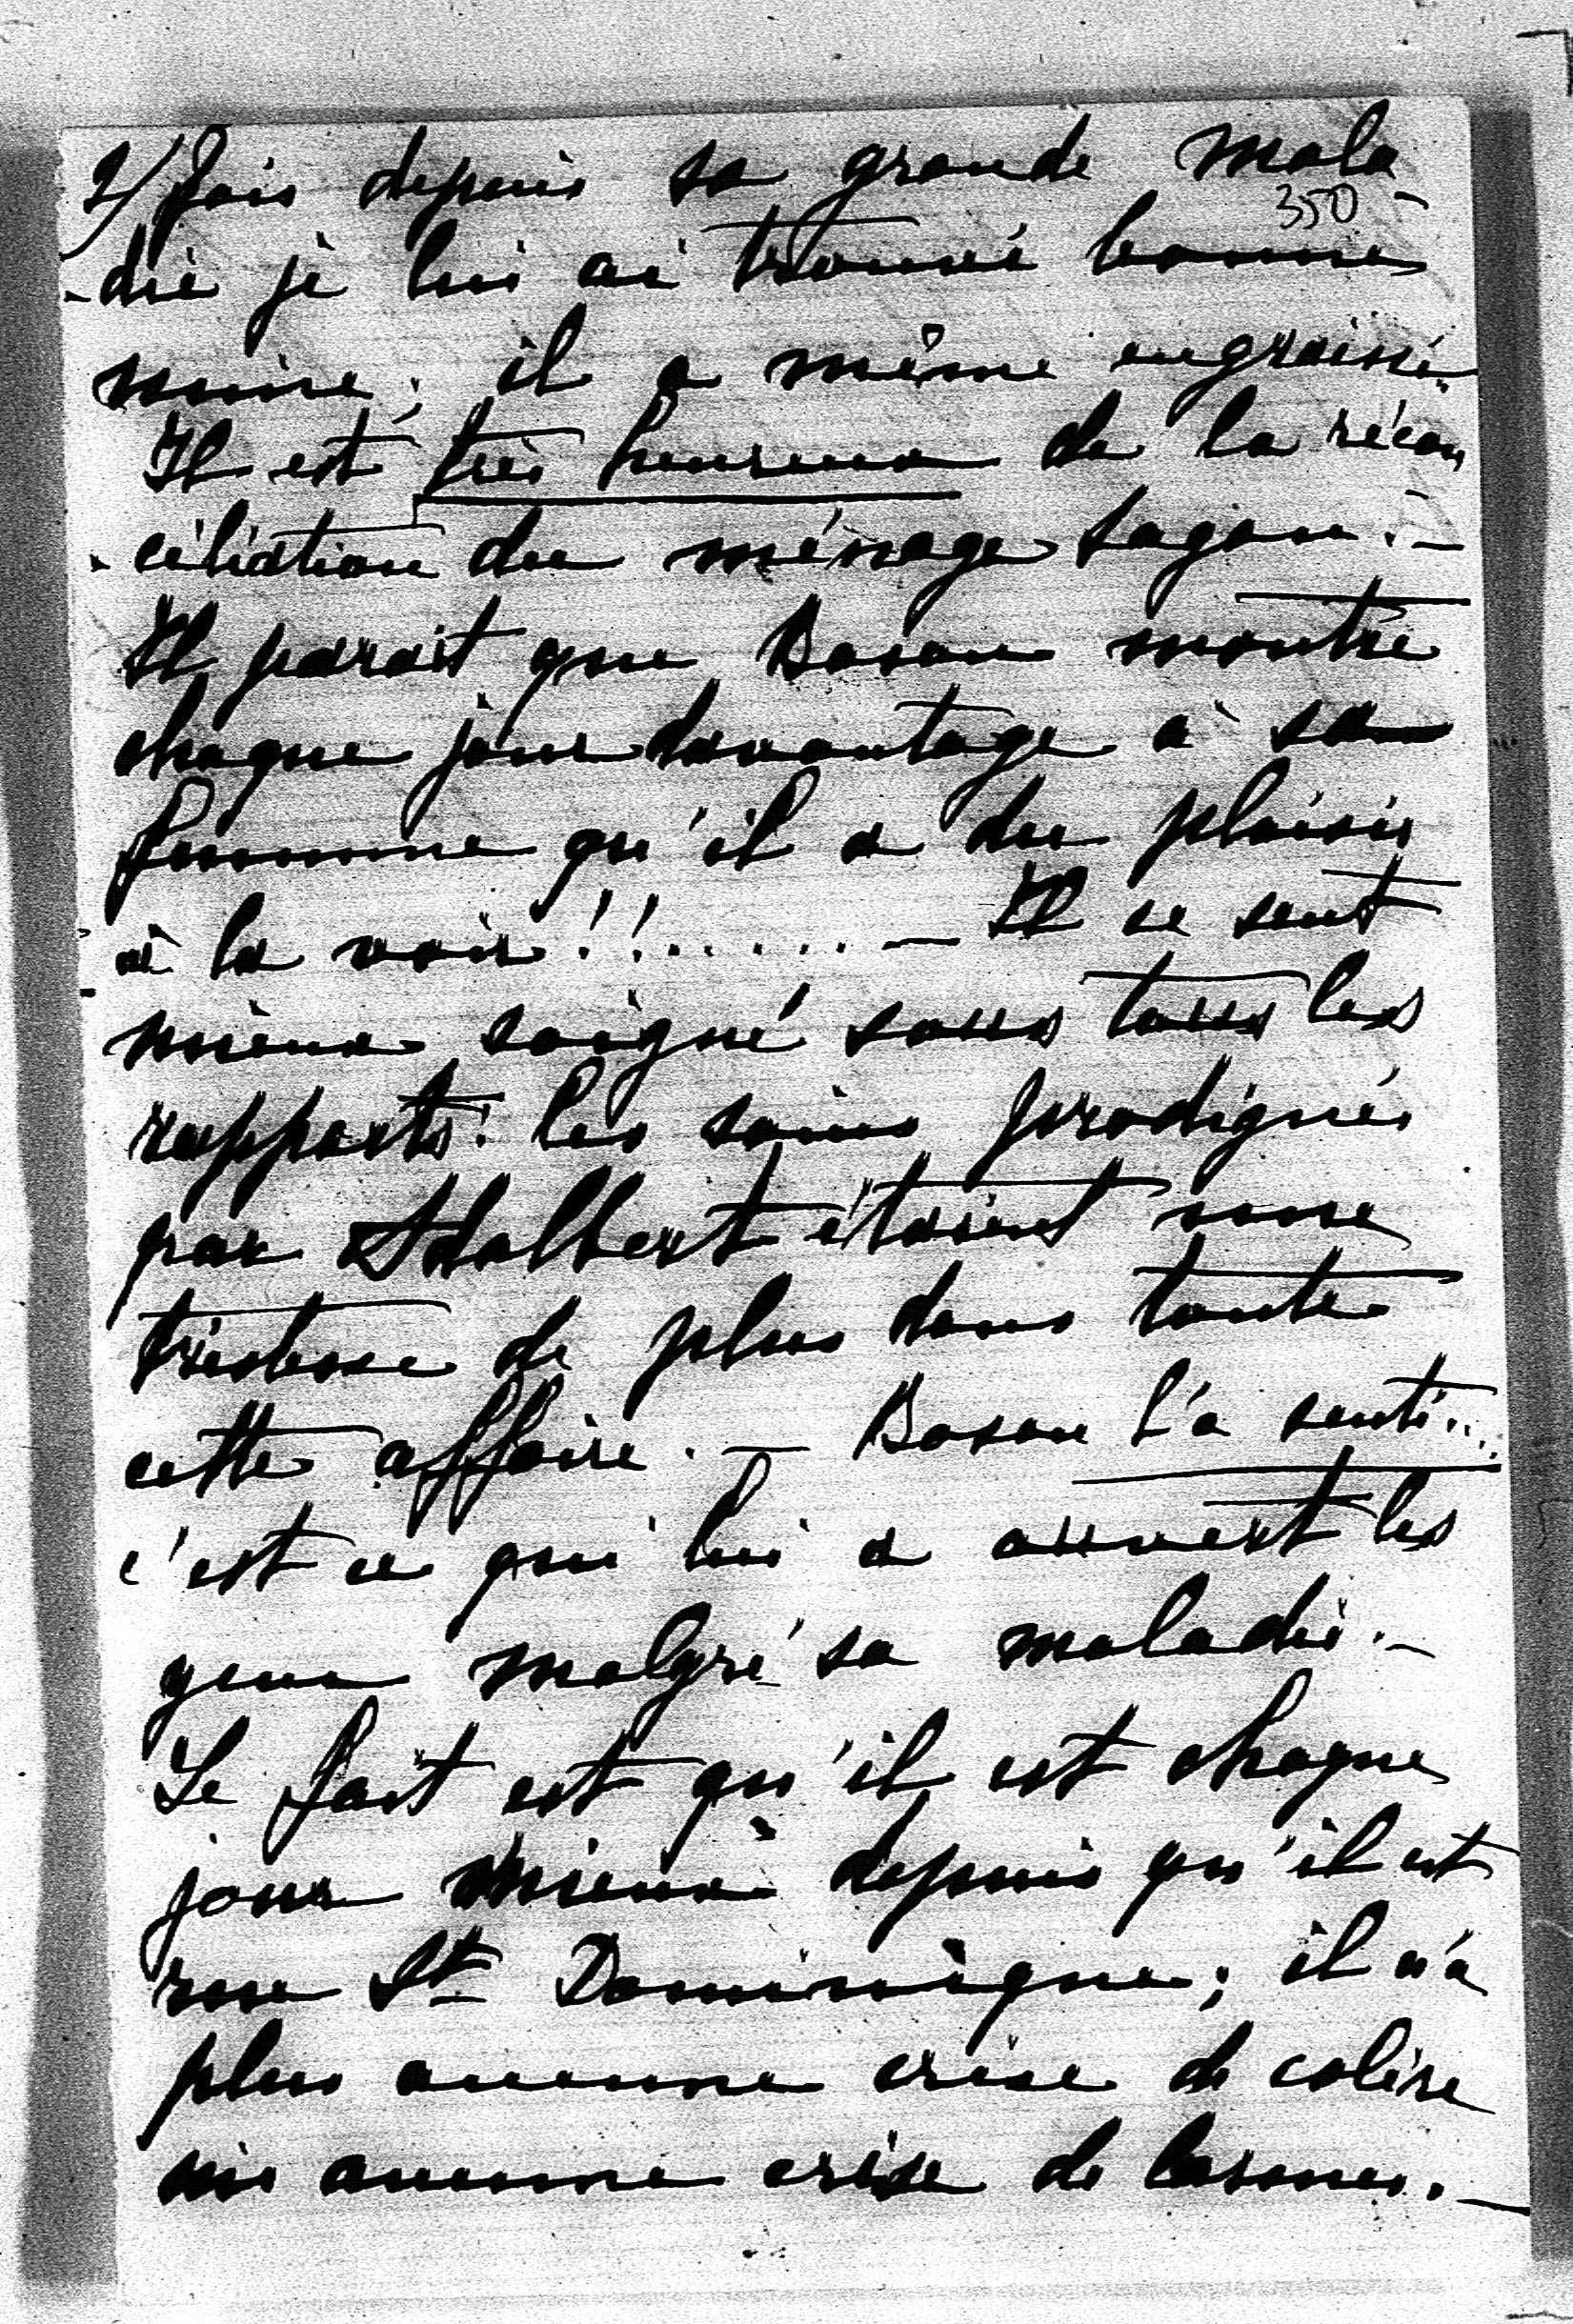 2/ fois depuis sa grande mala-
350
-die je lui ai trouvé bonne
mine; il a même engraissé.
Il est très heureux de la récon
-ciliation du ménage Sagan. –
Il parait que Boson montre
chaque jour davantage à sa
femme qu'il a du plaisir
à la voir!!...... – Il se sent
mieux soigné sous tous les
rapports: les soins prodigués
par Adalbert étaient une
tristesse de plus dans toute
cette affaire. – Boson l'a senti...
c'est ce qui lui a ouvert les
yeux malgré sa maladie. –
Le fait est qu'il est chaque
jour mieux depuis qu'il est
rue St Dominique; il n'a
plus aucune crise de colère
ni aucune crise de larmes. –